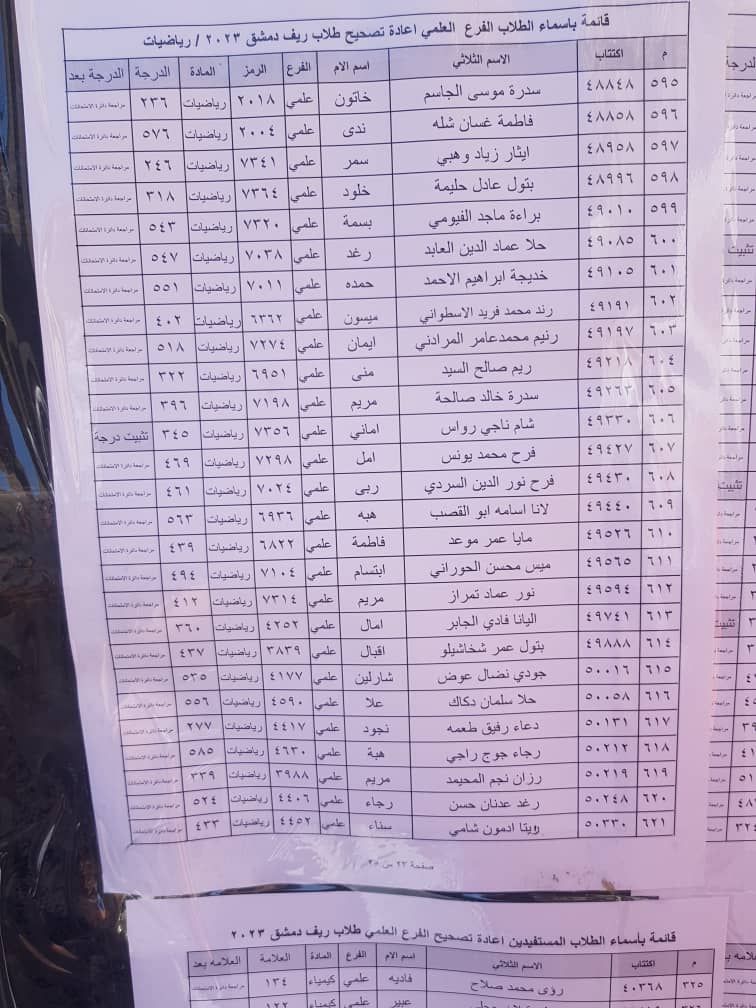 قائمة باسماء الطلاب الفرع العلمي اعادة تصحيح طلاب ريف دمشق ٢٠٢٣ / رياضيات
م اكتتاب الاسم الثلاثي اسم الام الفرع الرمز المادة الدرجة الدرجة بعد
٥٩٥ ٤٨٨٤٨ سدرة موسى الجاسم خاتون علمي ٢٠١٨ رياضيات ٢٣٦ مراجعة دائرة الامتحانات
٥٩٦ ٤٨٨٥٨ فاطمة غسان شله ندى علمي ٢٠٠٤ رياضيات ٥٧٦ مراجعة دائرة الامتحانات
٥٩٧ ٤٨٩٥٨ ايثار زياد وهبي سمر علمي ٧٣٤١ رياضيات ٢٤٦ مراجعة دائرة الامتحانات
٥٩٨ ٤٨٩٩٦ بتول عادل حليمة خلود علمي ٧٣٦٤ رياضيات ٣١٨ مراجعة دائرة الامتحانات
٥٩٩ ٤٩٠١٠ براءة ماجد الفيومي بسمة علمي ٧٣٢٠ رياضيات ٥٤٣ مراجعة دائرة الامتحانات
٦٠٠ ٤٩٠٨٥ حلا عماد الدين العابد رغد علمي ٧٠٣٨ رياضيات ٥٤٧ مراجعة دائرة الامتحانات
٦٠١ ٤٩١٠٥ خديجة ابراهيم الاحمد حمده علمي ٧٠١١ رياضيات ٥٥١ مراجعة دائرة الامتحانات
٦٠٢ ٤٩١٩١ رند محمد فريد الاسطواني ميسون علمي ٦٣٦٢ رياضيات ٤٠٢ مراجعة دائرة الامتحانات
٦٠٣ ٤٩١٩٧ رنيم محمدعامر المرادني ايمان علمي ٧٢٧٤ رياضيات ٥١٨ مراجعة دائرة الامتحانات
٦٠٤ ٤٩٢١٨ ريم صالح السيد منى علمي ٦٩٥١ رياضيات ٣٢٢ مراجعة دائرة الامتحانات
٦٠٥ ٤٩٢٦٣ سدرة خالد صالحة مريم علمي ٧١٩٨ رياضيات ٣٩٦ مراجعة دائرة الامتحانات
٦٠٦ ٤٩٣٣٠ شام ناجي رواس اماني علمي ٧٣٥٦ رياضيات ٣٤٥ تثبيت درجة
٦٠٧ ٤٩٤٢٧ فرح محمد يونس امل علمي ٧٢٩٨ رياضيات ٤٦٩ مراجعة دائرة الامتحانات
٦٠٨ ٤٩٤٣٠ فرح نور الدين السردي ربى علمي ٧٠٢٤ رياضيات ٤٦١ مراجعة دائرة الامتحانات
٦٠٩ ٤٩٤٤٠ لانا اسامه ابو القصب هبه علمي ٦٩٣٦ رياضيات ٥٦٣ مراجعة دائرة الامتحانات
٦١٠ ٤٩٥٢٦ مايا عمر موعد فاطمة علمي ٦٨٢٢ رياضيات ٤٣٩ مراجعة دائرة الامتحانات
٦١١ ٤٩٥٦٥ ميس محسن الحوراني ابتسام علمي ٧١٠٤ رياضيات ٤٩٤ مراجعة دائرة الامتحانات
٦١٢ ٤٩٥٩٤ نور عماد تمراز مريم علمي ٧٣١٤ رياضيات ٤١٢ مراجعة دائرة الامتحانات
٦١٣ ٤٩٧٤١ اليانا فادي الجابر امال علمي ٤٢٥٢ رياضيات ٣٦٠ مراجعة دائرة الامتحانات
٦١٤ ٤٩٨٨٨ بتول عمر شخاشيلو اقبال علمي ٣٨٣٩ رياضيات ٤٣٧ مراجعة دائرة الامتحانات
٦١٥ ٥٠٠١٦ جودي نضال عوض شارلين علمي ٤١٧٧ رياضيات ٥٣٥ مراجعة دائرة الامتحانات
٦١٦ ٥٠٠٥٨ حلا سلمان دكاك علا علمي ٤٥٩٠ رياضيات ٥٥٦ مراجعة دائرة الامتحانات
٦١٧ ٥٠١٣١ دعاء رفيق طعمه نجود علمي ٤٤١٧ رياضيات ٢٧٧ مراجعة دائرة الامتحانات
٦١٨ ٥٠٢١٢ رجاء جوج راجي هبة علمي ٤٦٣٠ رياضيات ٥٨٥ مراجعة دائرة الامتحانات
٦١٩ ٥٠٢١٩ رزان نجم المحيمد مريم علمي ٣٩٨٨ رياضيات ٣٣٩ مراجعة دائرة الامتحانات
٦٢٠ ٥٠٢٤٨ رغد عدنان حسن رجاء علمي ٤٤٠٦ رياضيات ٥٢٤ مراجعة دائرة الامتحانات
٦٢١ ٥٠٣٣٠ رويتا ادمون شامي سناء علمي ٤٤٥٢ رياضيات ٤٣٣ مراجعة دائرة الامتحانات
صفحة ٢٣ من
قائمة بأسماء الطلاب المستفيدين اعادة تصحيح الفرع العلمي طلاب ريف دمشق ٢٠٢٣
م اكتتاب الاسم الثلاثي اسم الام الفرع المادة العلامة العلامه بعد
٣٢٥ ٤٠٣٦٨ رؤى محمد صلاح فاديه علمي كيمياء ١٣٤ مراجعة دائرة الامتحانات
عبير علمي كيمياء ١٢٢
الدرجة
تثبيت
تثبيت
تثبيت
العلامه